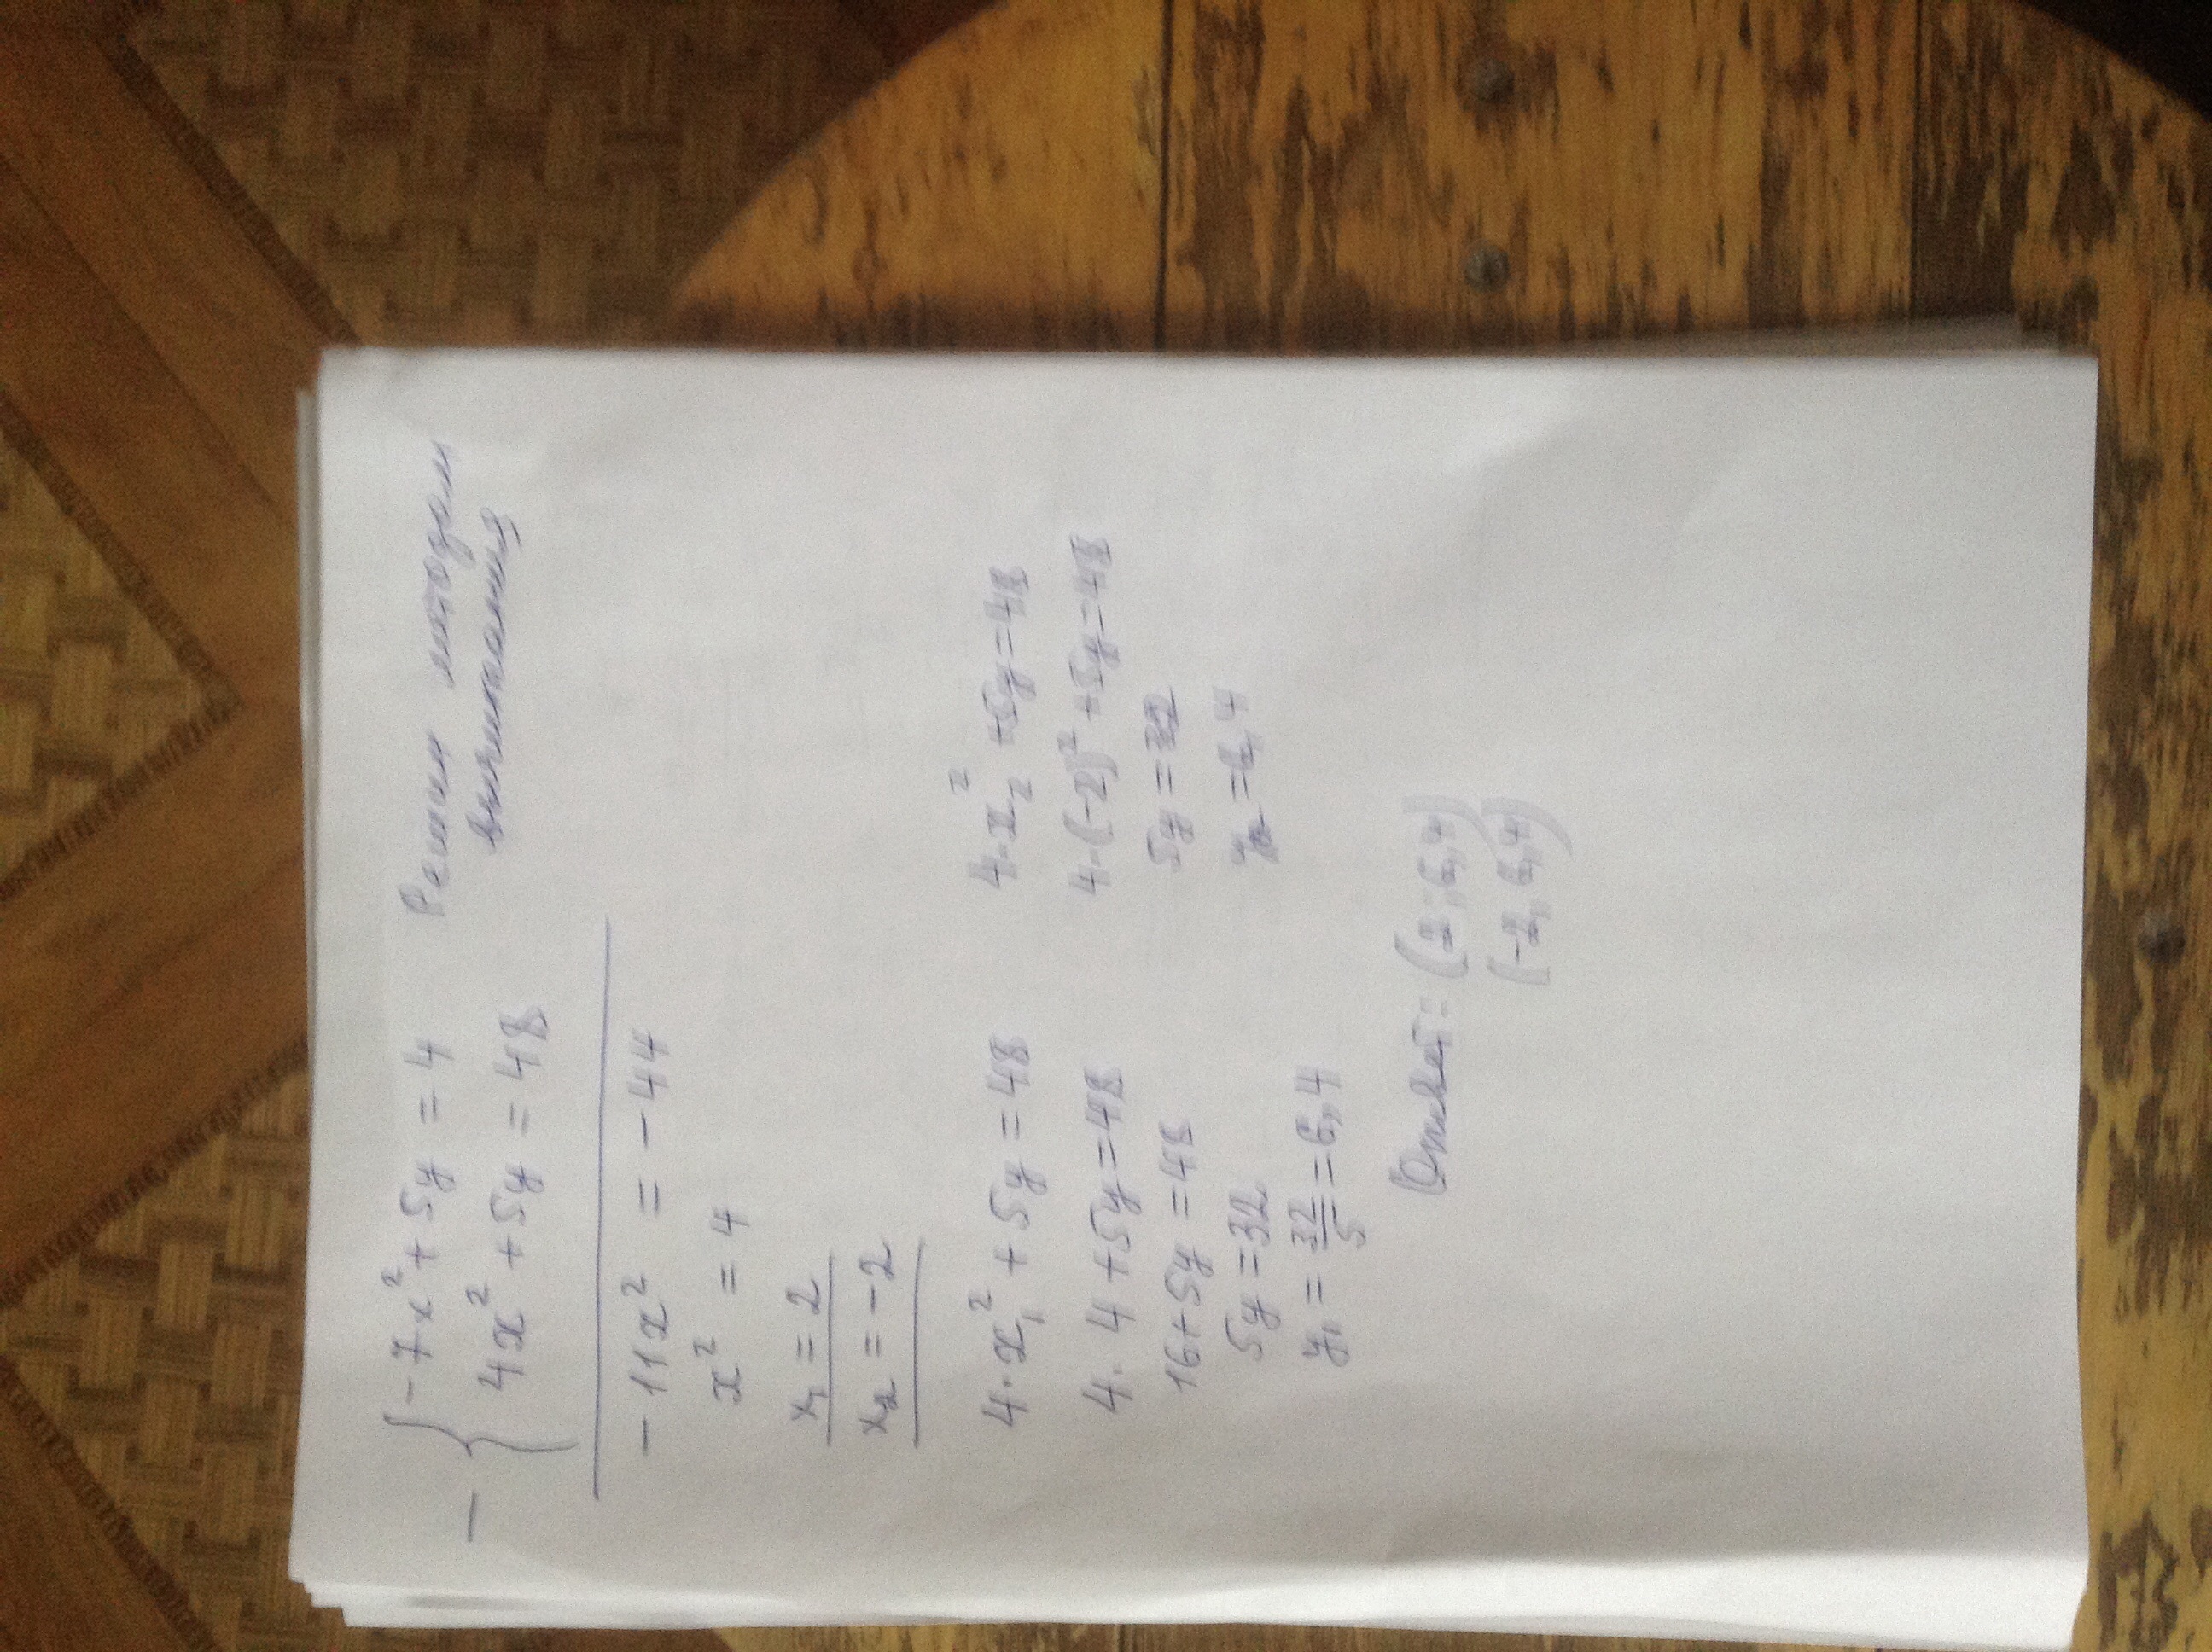 − { −7x² + 5y = 4
4x² + 5y = 48
Решим методом
вычитания
−11x² = −44
x² = 4
x₁ = 2
x₂ = −2
4·x₁² + 5y = 48
4·4 + 5y = 48
16 + 5y = 48
5y = 32
y₁ = 32/5 = 6,4
4·x₂² + 5y = 48
4·(−2)² + 5y = 48
5y = 32
y₂ = 6,4
Ответ: (2; 6,4)
(−2; 6,4)